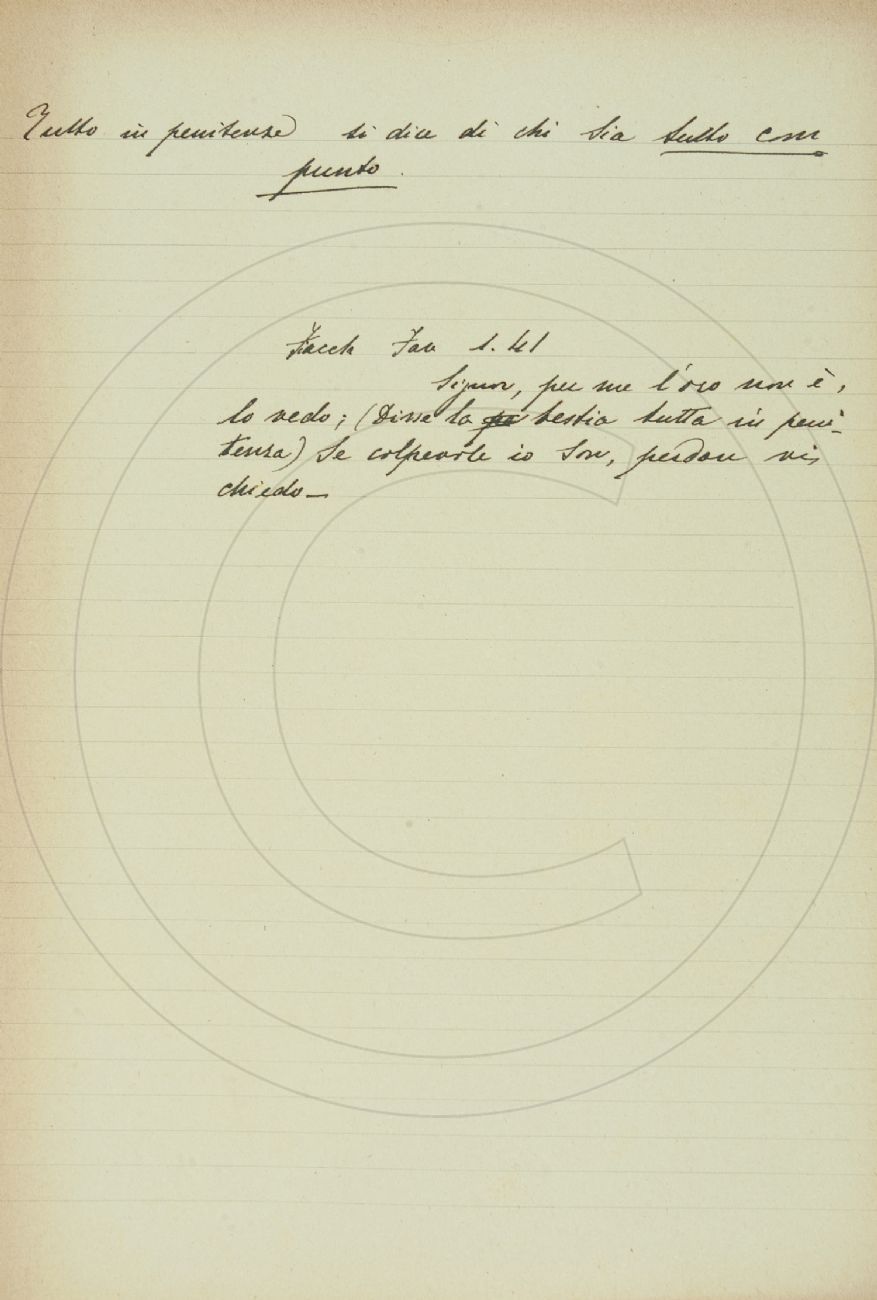 Tutto in penitenza si dice di chi sia tutto com
punto.
Facch Fav 1. 41
Signor, per me l'oro non è,
lo vedo; (Disse la bestia tutta in peni-
tenza) Se colpevole io son, perdon vi
chiedo_